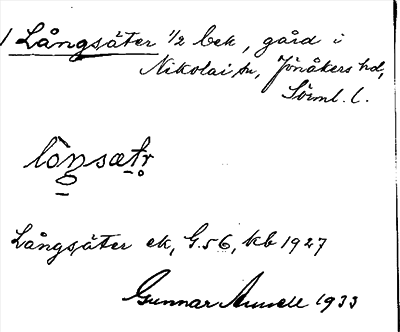 1 Långsäter 1/2 bek, gård i
Nikolai sn, Jönåkers hd,
Sörml. l.
Långsäter ek, G.56, kb 1927
Gunnar 1933